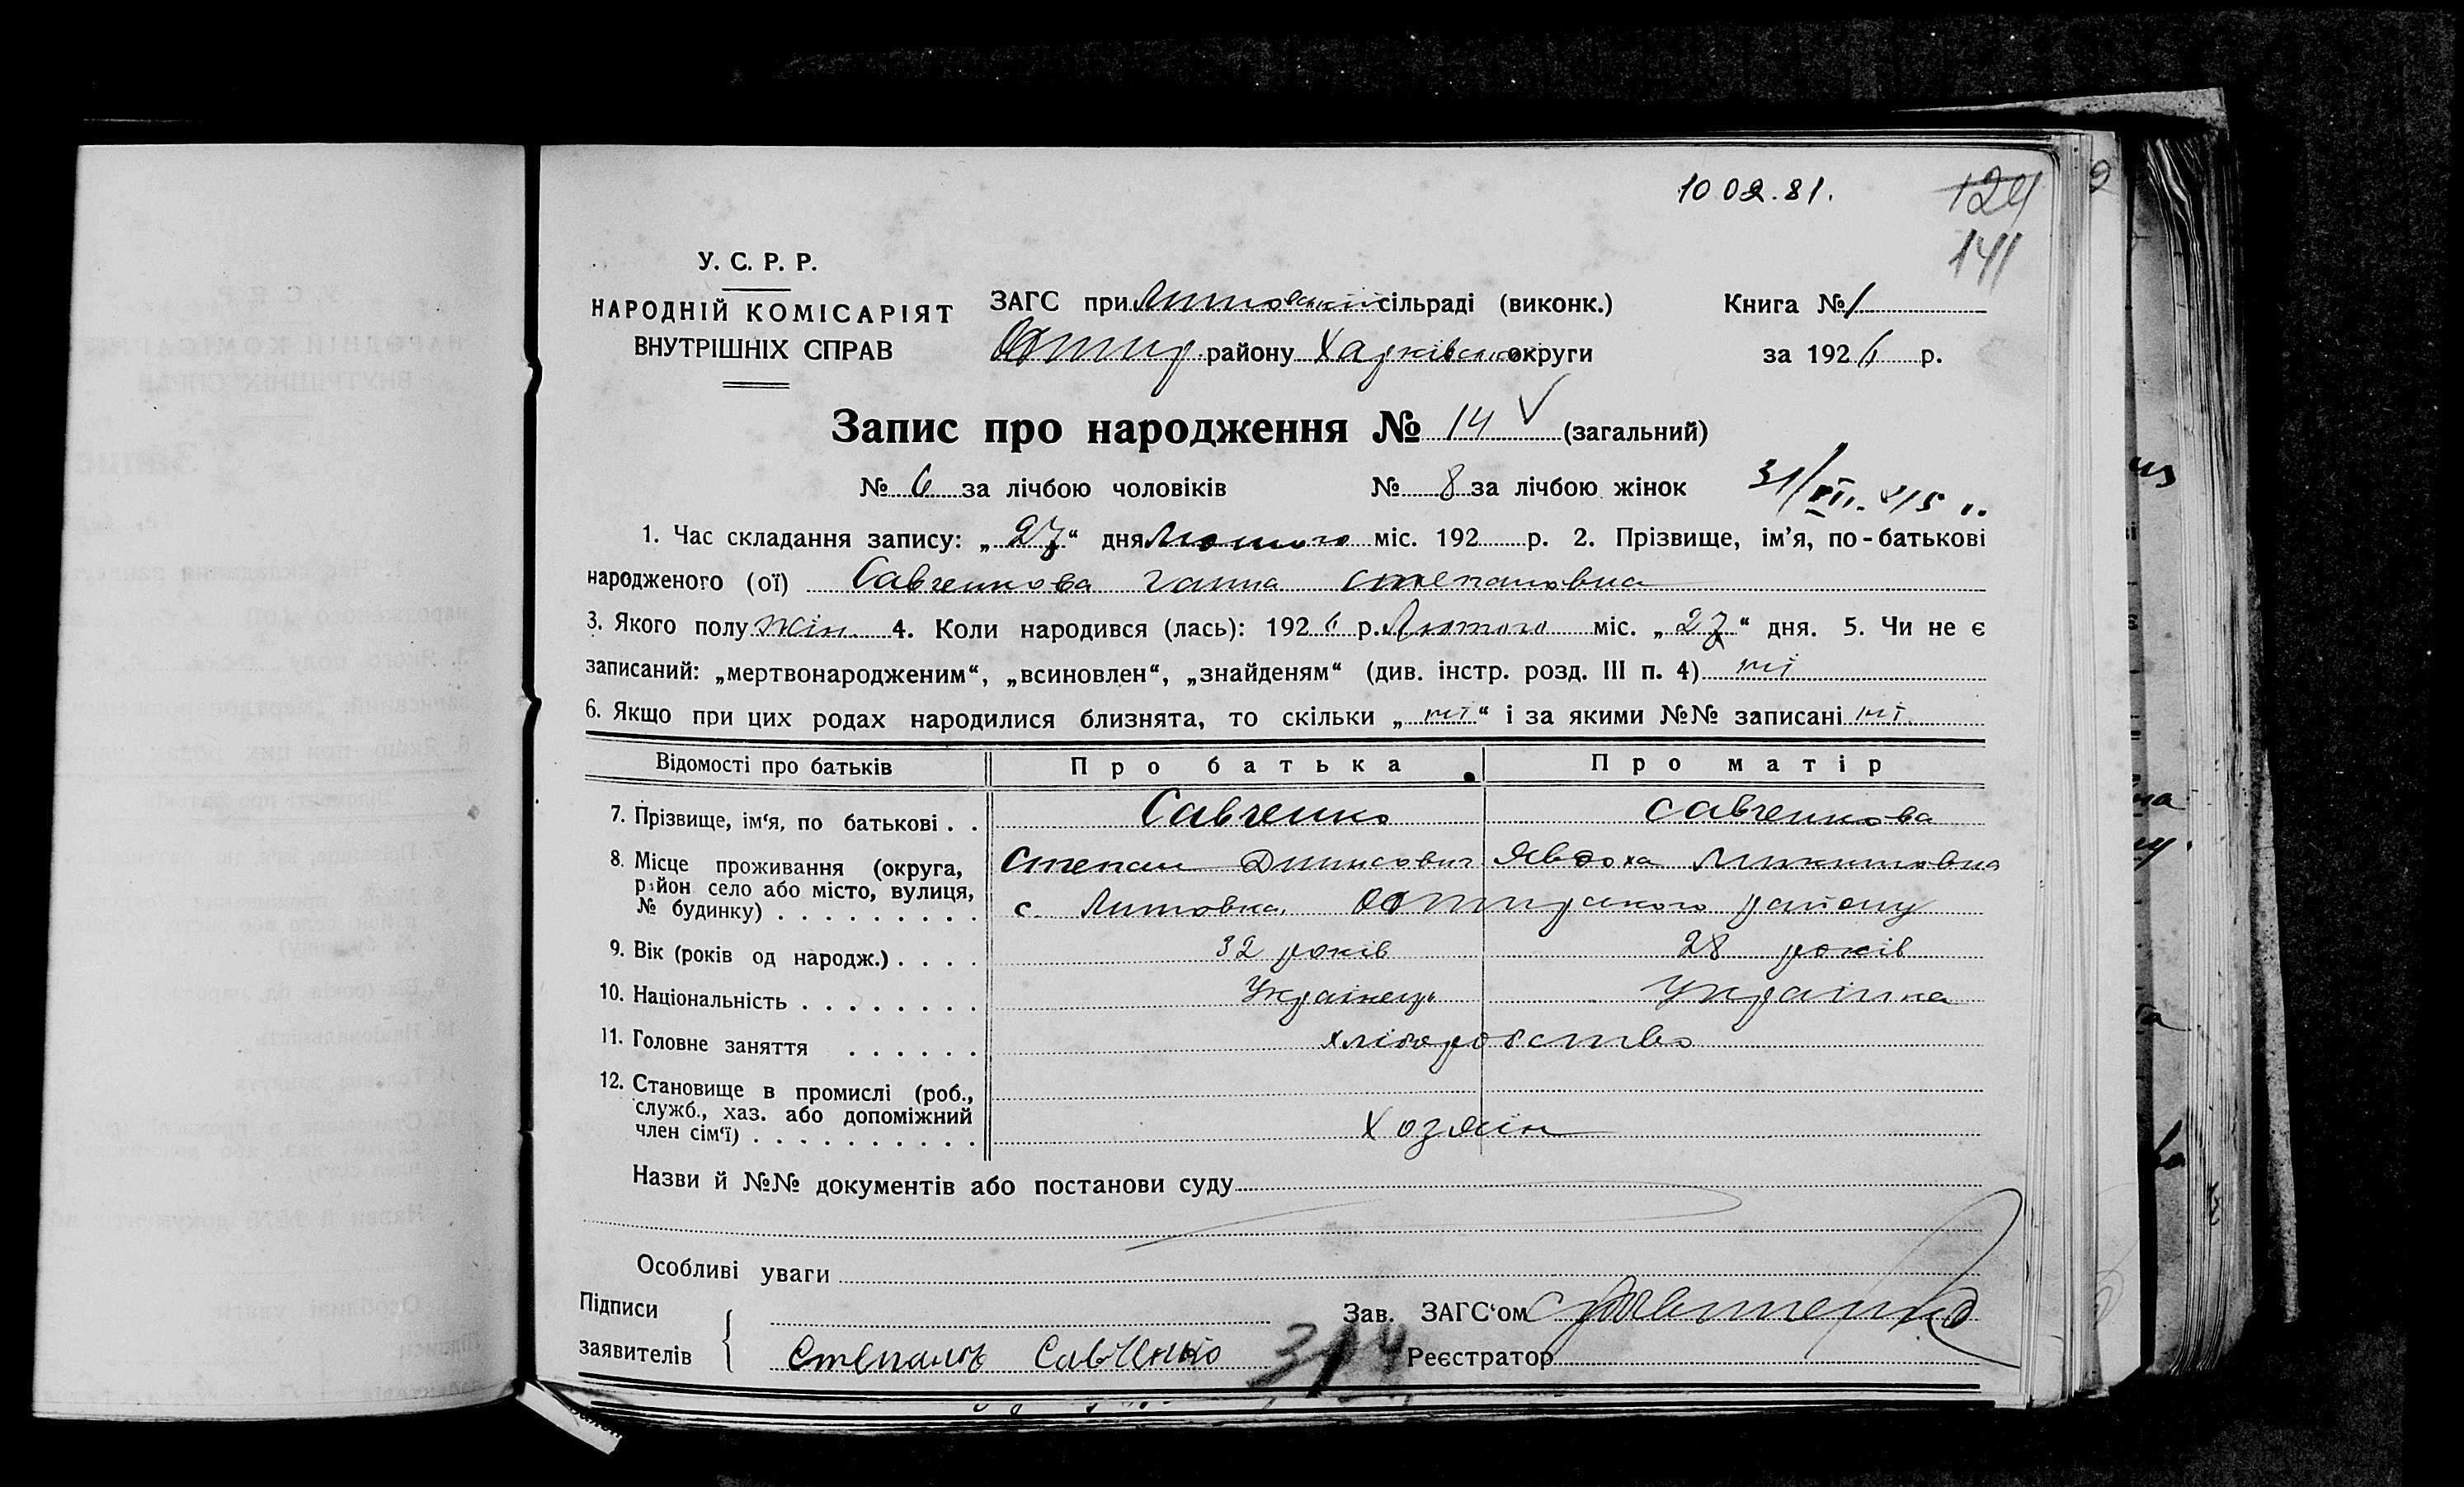 10.02.81.
124
141
У. С. Р. Р.
НАРОДНІЙ КОМІСАРІЯТ
ВНУТРІШНІХ СПРАВ
ЗАГС при Литовській сільраді (виконк.)
Охтир. району Харківської округи
Книга № 1
за 1926 р.
Запис про народження № 14 (загальний)
№ 6 за лічбою чоловіків № 8 за лічбою жінок
1. Час складання запису: „27“ дня Лютого міс. 192 р. 2. Прізвище, ім’я, по-батькові
народженого (ої) Савченкова Ганна Степановна
3. Якого полу жін. 4. Коли народився (лась): 1926 р. Лютого міс. „27“ дня. 5. Чи не є
записаний: „мертвонародженим“, „всиновлен“, „знайденям“ (див. інстр. розд. III п. 4) ні
6. Якщо при цих родах народилися близнята, то скільки „ні“ і за якими №№ записані ні
Відомості про батьків Про батька Про матір
7. Прізвище, ім‘я, по батькові . . Савченко Савченкова
8. Місце проживання (округа, Степан Динисович Явдоха Микитовна
район село або місто, вулиця,
№ будинку) . . . . . . . . . с. Литовка, Охтирського району
9. Вік (років од народж.) . . . . 32 років 28 років
10. Національність . . . . . . . . Українець Українка
11. Головне заняття . . . . . . хліборобство
12. Становище в промислі (роб.,
служб., хаз. або допоміжний
член сім‘ї) . . . . . . . . . . Хозяін
Назви й №№ документів або постанови суду
Особливі уваги
Підписи
заявителів
Степанъ Савченко
Зав. ЗАГС‘ом
314
Реєстратор